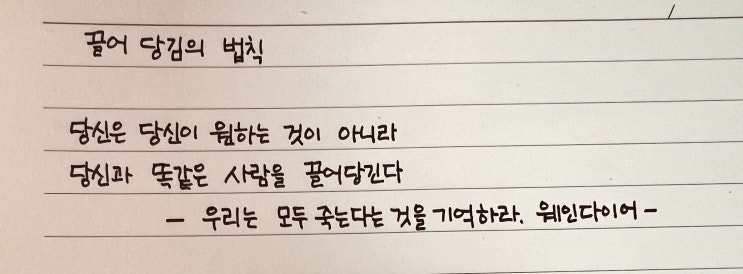 끌어 당김의 법칙
당신은 당신이 원하는 것이 아니라
당신과 똑같은 사람을 끌어당긴다
- 우리는 모두 죽는다는 것을 기억하라. 웨인다이어 -